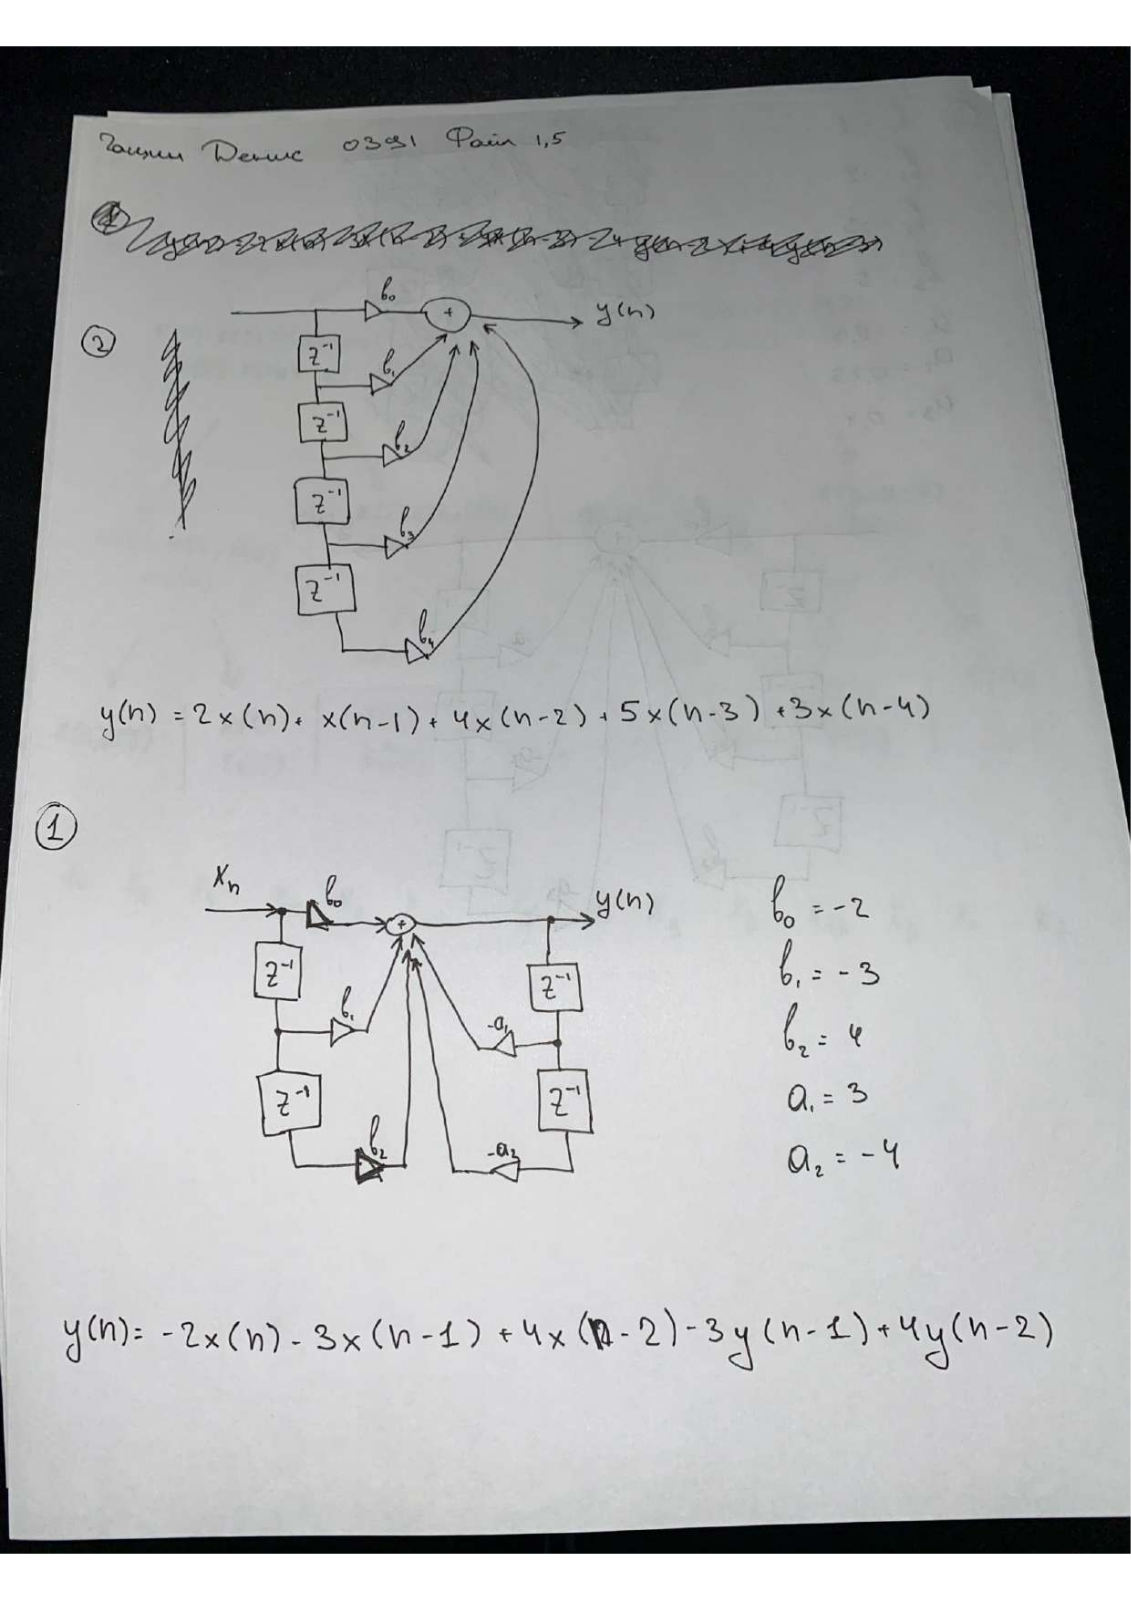 Денис 0391 Файл 1,5
2
b₀
+
y(n)
z⁻¹
b₁
z⁻¹
b₂
z⁻¹
b₃
z⁻¹
b₄
y(n) = 2x(n) + x(n-1) + 4x(n-2) + 5x(n-3) + 3x(n-4)
1
xₙ
b₀
+
y(n)
z⁻¹
z⁻¹
b₁
-a₁
z⁻¹
z⁻¹
b₂
-a₂
b₀ = -2
b₁ = -3
b₂ = 4
a₁ = 3
a₂ = -4
y(n) = -2x(n) - 3x(n-1) + 4x(n-2) - 3y(n-1) + 4y(n-2)